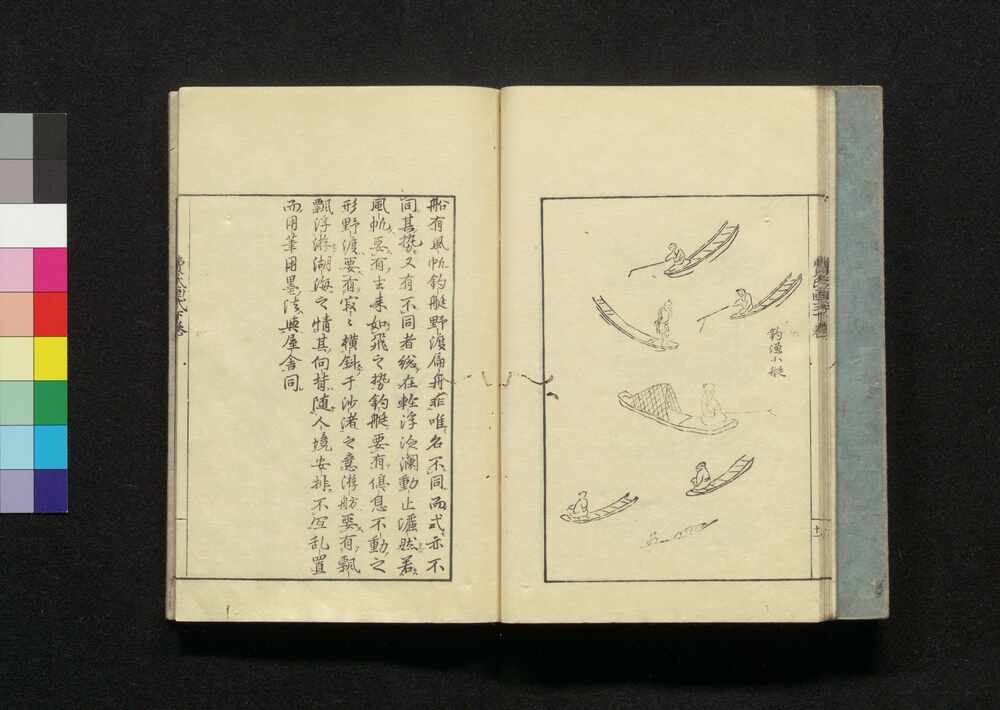 釣漁小艇
船有風帆釣艇野渡扁舟非唯名不同而式亦不
同其勢又有不同者総在軽浮波瀾動止灑然若
風帆要有去来如飛之勢釣艇要有偃息不動之
形野渡要有寂〻横斜于沙渚之意游舫要有飄
飄浮游湖海之情其向背随人境安排不宜乱置
而用筆用墨法与屋舎同